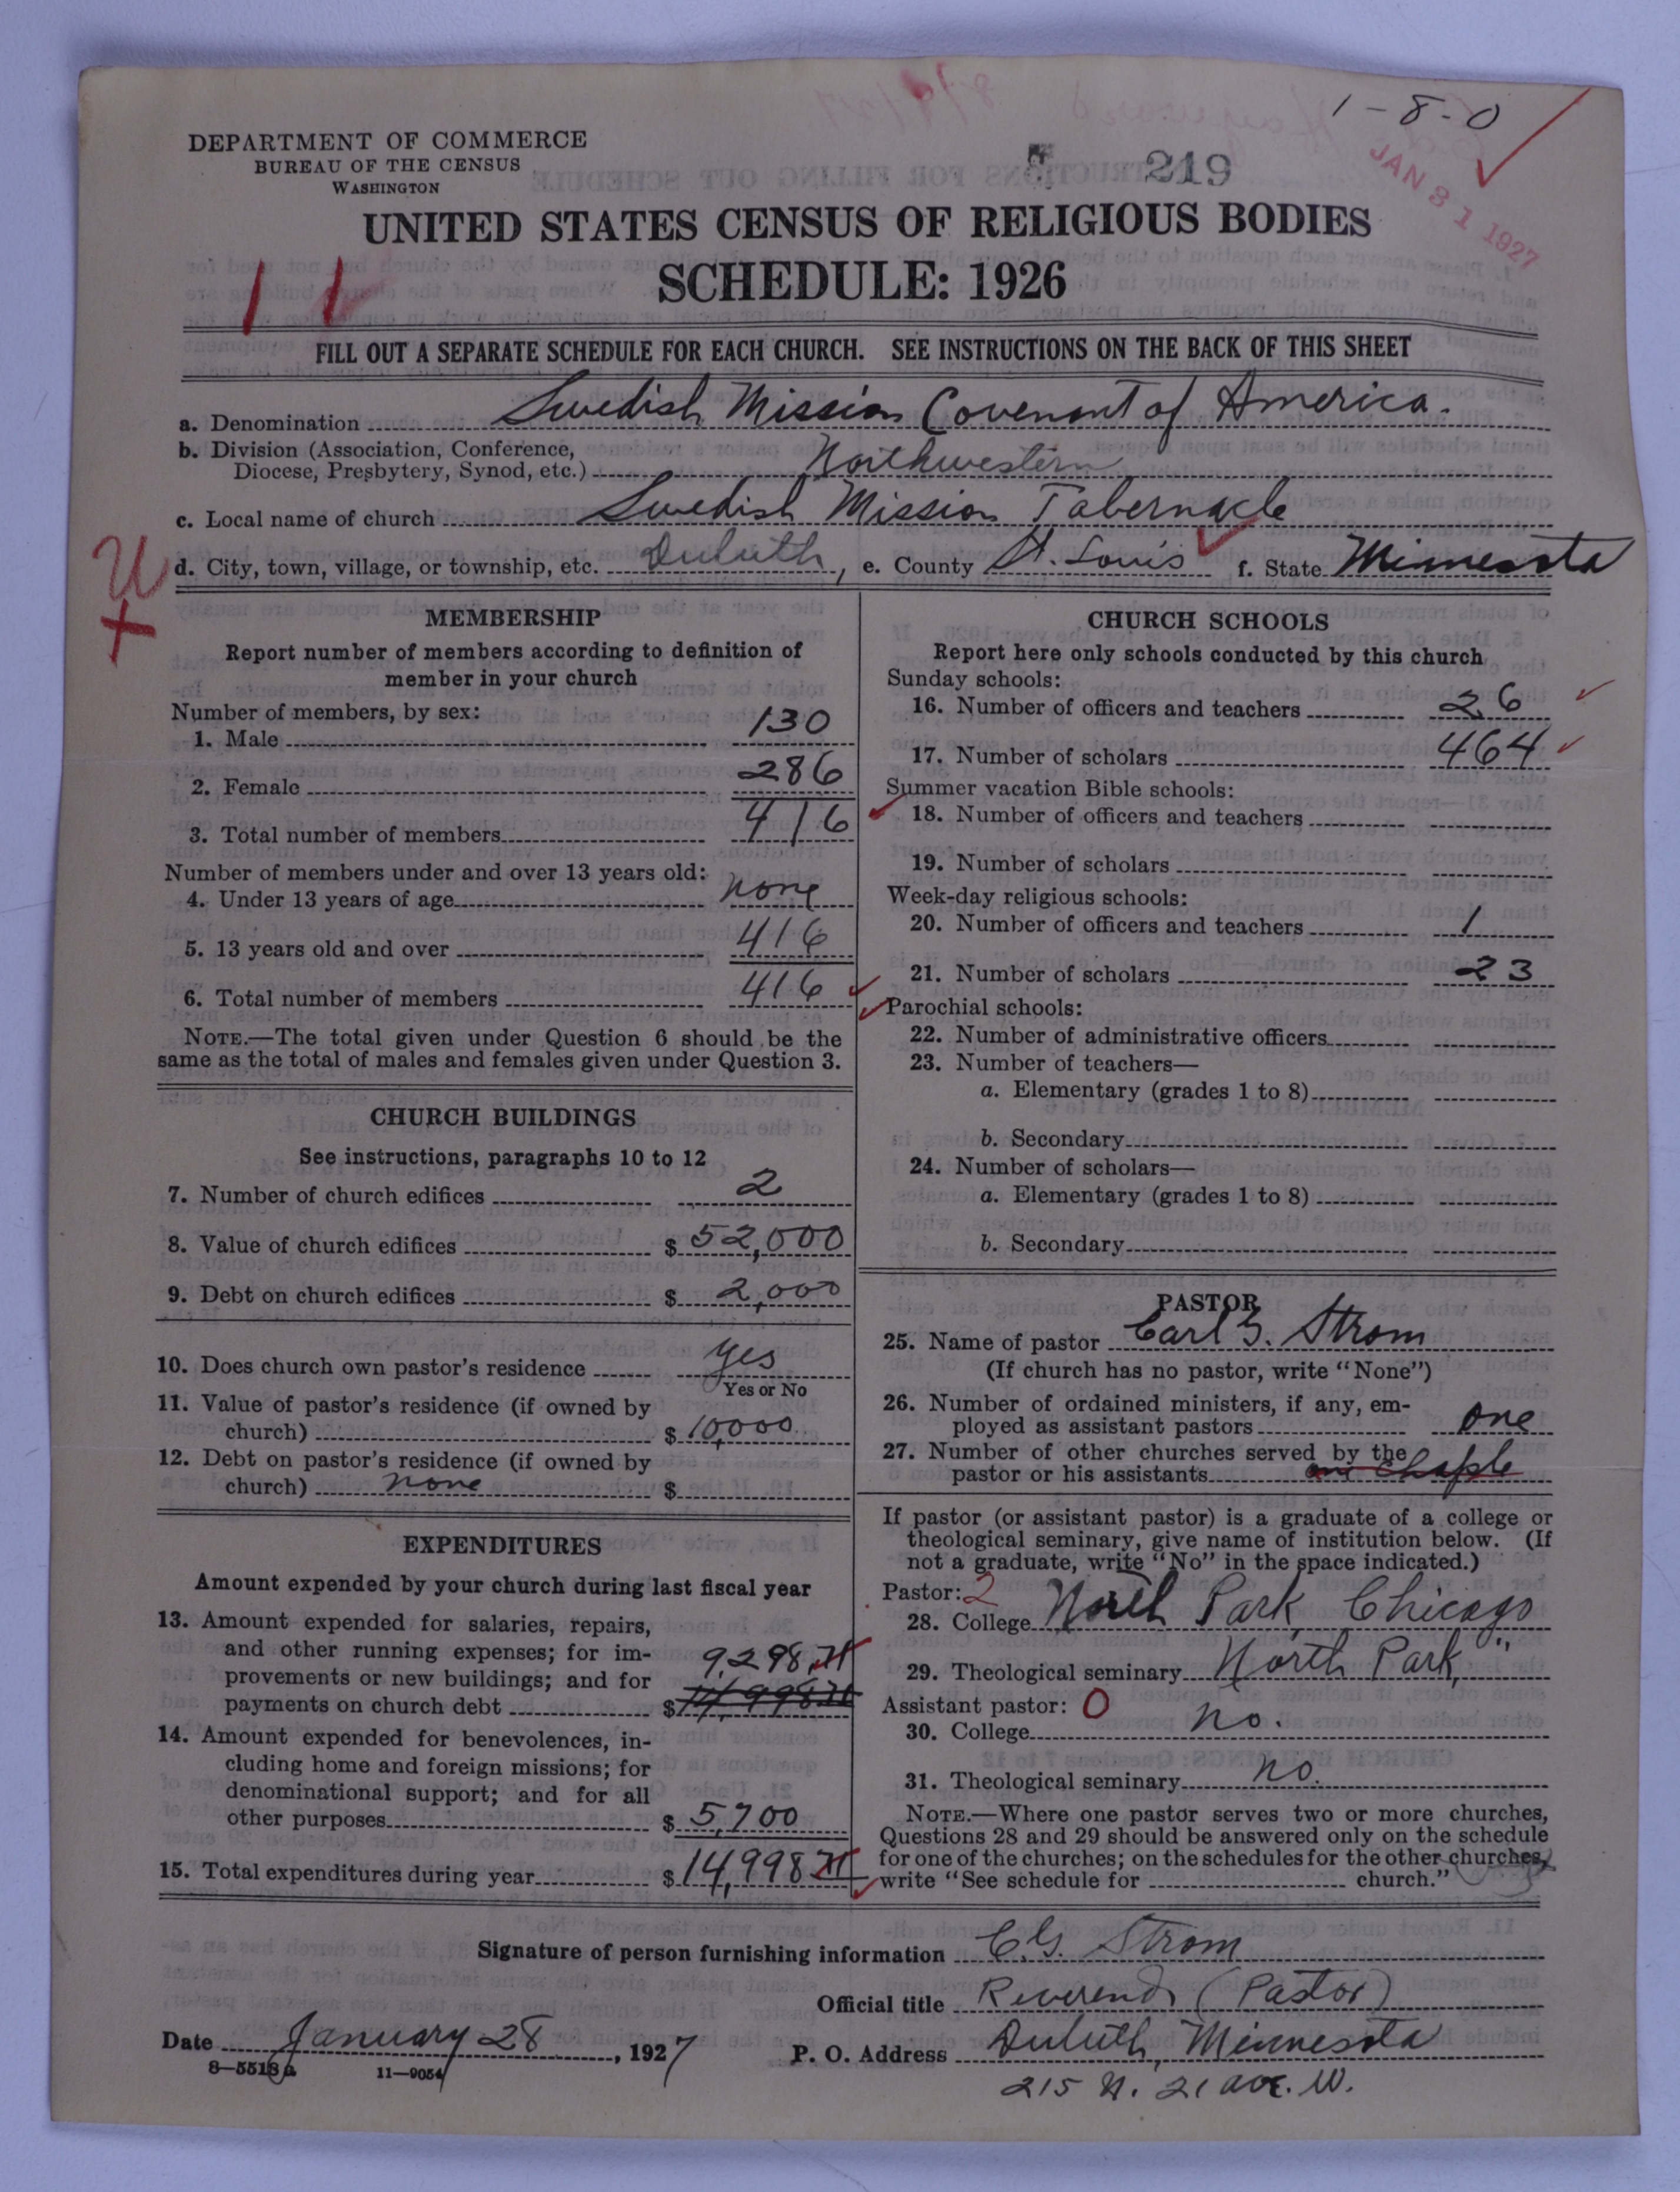 1-8-0
DEPARTMENT OF COMMERCE
BUREAU OF THE CENSUS
WASHINGTON
219
JAN 31 1927
UNITED STATES CENSUS OF RELIGIOUS BODIES
SCHEDULE: 1926
11
FILL OUT A SEPARATE SCHEDULE FOR EACH CHURCH. SEE INSTRUCTIONS ON THE BACK OF THIS SHEET
a. Denomination Swedish Mission Covenant of America.
b. Division (Association, Conference,
Diocese, Presbytery, Synod, etc.) Northwestern
c. Local name of church Swedish Mission Tabernacle
U d. City, town, village, or township, etc. Duluth, e. County St. Louis f. State Minnesota
X
MEMBERSHIP
Report number of members according to definition of
member in your church
Number of members, by sex:
1. Male 130
2. Female 286
3. Total number of members 416
Number of members under and over 13 years old:
4. Under 13 years of age none
5. 13 years old and over 416
6. Total number of members 416
NOTE.—The total given under Question 6 should be the
same as the total of males and females given under Question 3.
CHURCH BUILDINGS
See instructions, paragraphs 10 to 12
7. Number of church edifices 2
8. Value of church edifices $ 52,000
9. Debt on church edifices $ 2,000
10. Does church own pastor's residence yes
Yes or No
11. Value of pastor's residence (if owned by
church) $ 10,000
12. Debt on pastor's residence (if owned by
church) none $
EXPENDITURES
Amount expended by your church during last fiscal year
13. Amount expended for salaries, repairs,
and other running expenses; for im-
provements or new buildings; and for 9,298.71
payments on church debt $ 14,998.71
14. Amount expended for benevolences, in-
cluding home and foreign missions; for
denominational support; and for all
other purposes $ 5,700
15. Total expenditures during year $ 14,998.71
CHURCH SCHOOLS
Report here only schools conducted by this church
Sunday schools:
16. Number of officers and teachers 26
17. Number of scholars 464
Summer vacation Bible schools:
18. Number of officers and teachers
19. Number of scholars
Week-day religious schools:
20. Number of officers and teachers 1
21. Number of scholars 23
Parochial schools:
22. Number of administrative officers
23. Number of teachers—
a. Elementary (grades 1 to 8)
b. Secondary
24. Number of scholars—
a. Elementary (grades 1 to 8)
b. Secondary
PASTOR
25. Name of pastor Carl G. Strom
(If church has no pastor, write "None")
26. Number of ordained ministers, if any, em-
ployed as assistant pastors one
27. Number of other churches served by the
pastor or his assistants chaple
If pastor (or assistant pastor) is a graduate of a college or
theological seminary, give name of institution below. (If
not a graduate, write "No" in the space indicated.)
Pastor: 2
28. College North Park, Chicago
29. Theological seminary North Park, "
Assistant pastor: 0
30. College no.
31. Theological seminary no.
NOTE.—Where one pastor serves two or more churches,
Questions 28 and 29 should be answered only on the schedule
for one of the churches; on the schedules for the other churches,
write "See schedule for church."
Signature of person furnishing information C.G. Strom
Official title Reverend (Pastor)
Date January 28, 1927 P. O. Address Duluth, Minnesota
8—5518a 11—9054 215 N. 21 ave. W.